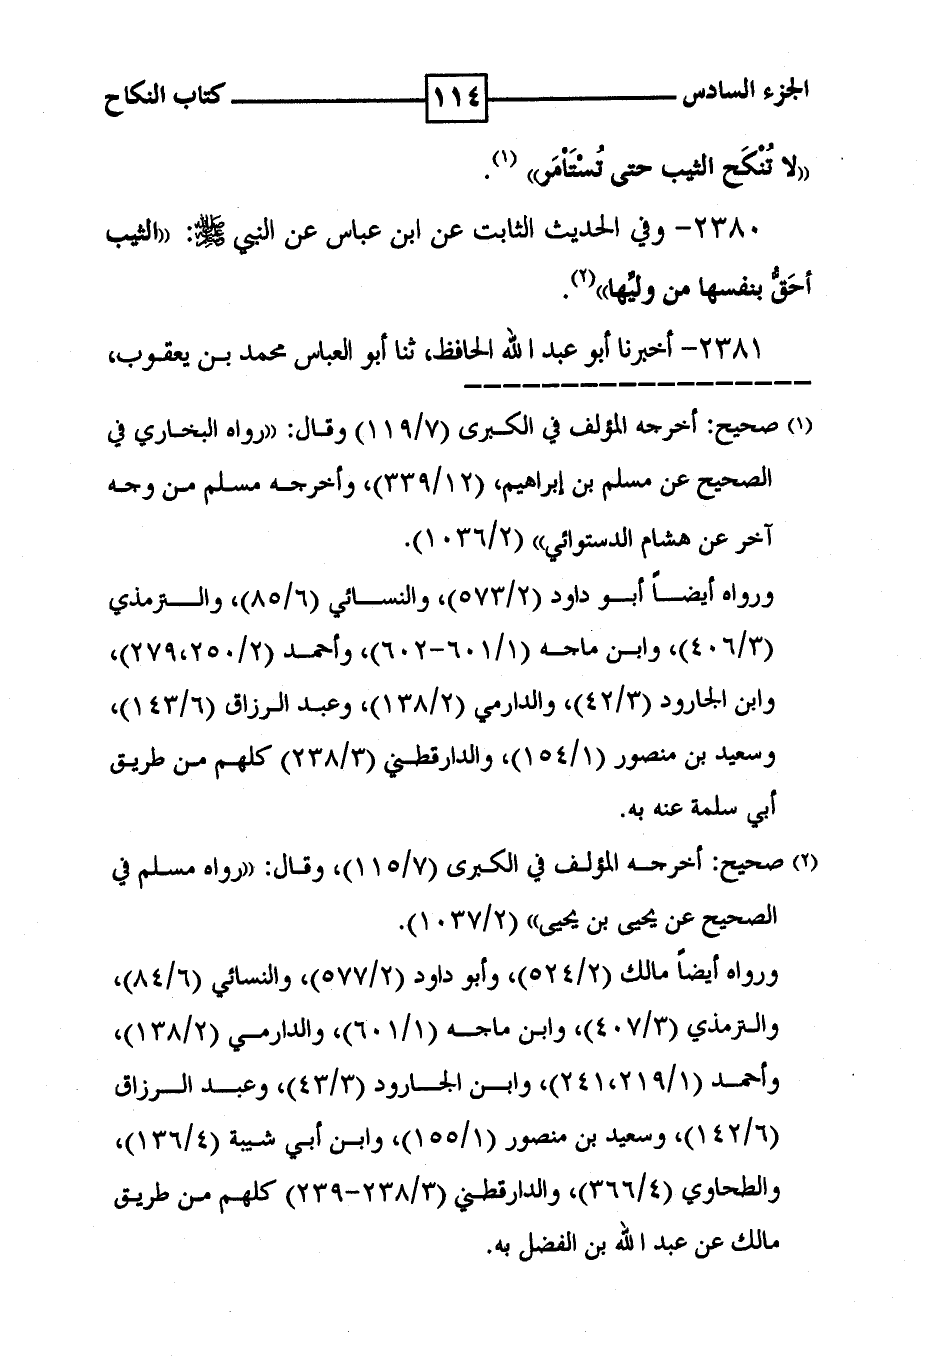 الجزء السادس ١١٤ كتاب النكاح
«لا تُنْكَح الثيب حتى تُسْتَأمَر» (١).
٢٣٨٠- وفي الحديث الثابت عن ابن عباس عن النبي ﷺ: «الثيب
أحَقُّ بنفسها من وليِّها»(٢).
٢٣٨١- أخبرنا أبو عبد الله الحافظ، ثنا أبو العباس محمد بن يعقوب،
(١) صحيح: أخرجه المؤلف في الكبرى (١١٩/٧) وقال: «رواه البخاري في
الصحيح عن مسلم بن إبراهيم، (٣٣٩/١٢)، وأخرجه مسلم من وجه
آخر عن هشام الدستوائي» (١٠٣٦/٢).
ورواه أيضاً أبو داود (٥٧٣/٢)، والنسائي (٨٥/٦)، والترمذي
(٤٠٦/٣)، وابن ماجه (٦٠١/١-٦٠٢)، وأحمد (٢٧٩،٢٥٠/٢)،
وابن الجارود (٤٢/٣)، والدارمي (١٣٨/٢)، وعبد الرزاق (١٤٣/٦)،
وسعيد بن منصور (١٥٤/١)، والدارقطني (٢٣٨/٣) كلهم من طريق
أبي سلمة عنه به.
(٢) صحيح: أخرجه المؤلف في الكبرى (١١٥/٧)، وقال: «رواه مسلم في
الصحيح عن يحيى بن يحيى» (١٠٣٧/٢).
ورواه أيضاً مالك (٥٢٤/٢)، وأبو داود (٥٧٧/٢)، والنسائي (٨٤/٦)،
والترمذي (٤٠٧/٣)، وابن ماجه (٦٠١/١)، والدارمي (١٣٨/٢)،
وأحمد (٢٤١،٢١٩/١)، وابن الجارود (٤٣/٣)، وعبد الرزاق
(١٤٢/٦)، وسعيد بن منصور (١٥٥/١)، وابن أبي شيبة (١٣٦/٤)،
والطحاوي (٣٦٦/٤)، والدارقطني (٢٣٨/٣-٢٣٩) كلهم من طريق
مالك عن عبد الله بن الفضل به.